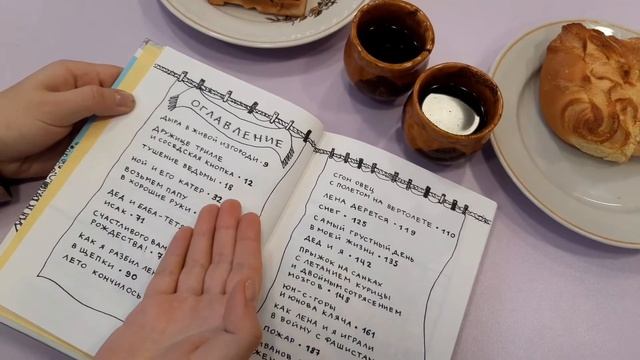 ОГЛАВЛЕНИЕ
ДЫРА В ЖИВОЙ ИЗГОРОДИ • 9
ДРУЖИЩЕ ТРИЛЛЕ
И СОСЕДСКАЯ КНОПКА • 12
ТУШЕНИЕ ВЕДЬМЫ • 18
НОЙ И ЕГО КАТЕР • 32
ВОЗЬМЕМ ПАПУ
В ХОРОШИЕ РУКИ
ДЕД И БАБА-ТЕТЯ
ИСАК • 71
СЧАСТЛИВОГО ВАМ
РОЖДЕСТВА!
КАК Я РАЗБИЛ
В ЩЕПКИ • 90
ЛЕТО КОНЧИЛОСЬ
СГОН ОВЕЦ
С ПОЛЕТОМ НА ВЕРТОЛЕТЕ • 110
ЛЕНА ДЕРЕТСЯ • 119
СНЕГ • 125
САМЫЙ ГРУСТНЫЙ ДЕНЬ
В МОЕЙ ЖИЗНИ • 135
ДЕД И Я • 142
ПРЫЖОК НА САНКАХ
С ЛЕТАНИЕМ КУРИЦЫ
И ДВОЙНЫМ СОТРЯСЕНИЕМ
МОЗГОВ • 148
ЮН-С-ГОРЫ
И ЮНОВА КЛЯЧА • 161
КАК ЛЕНА И Я ИГРАЛИ
В ВОЙНУ С ФАШИСТАМИ
ПОЖАР • 187